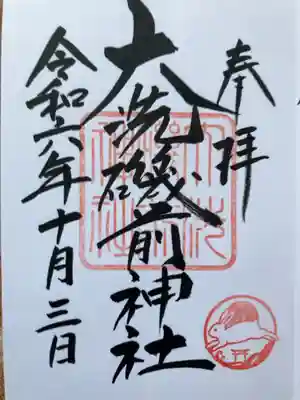 奉拝
大洗磯前神社
令和六年十月三日